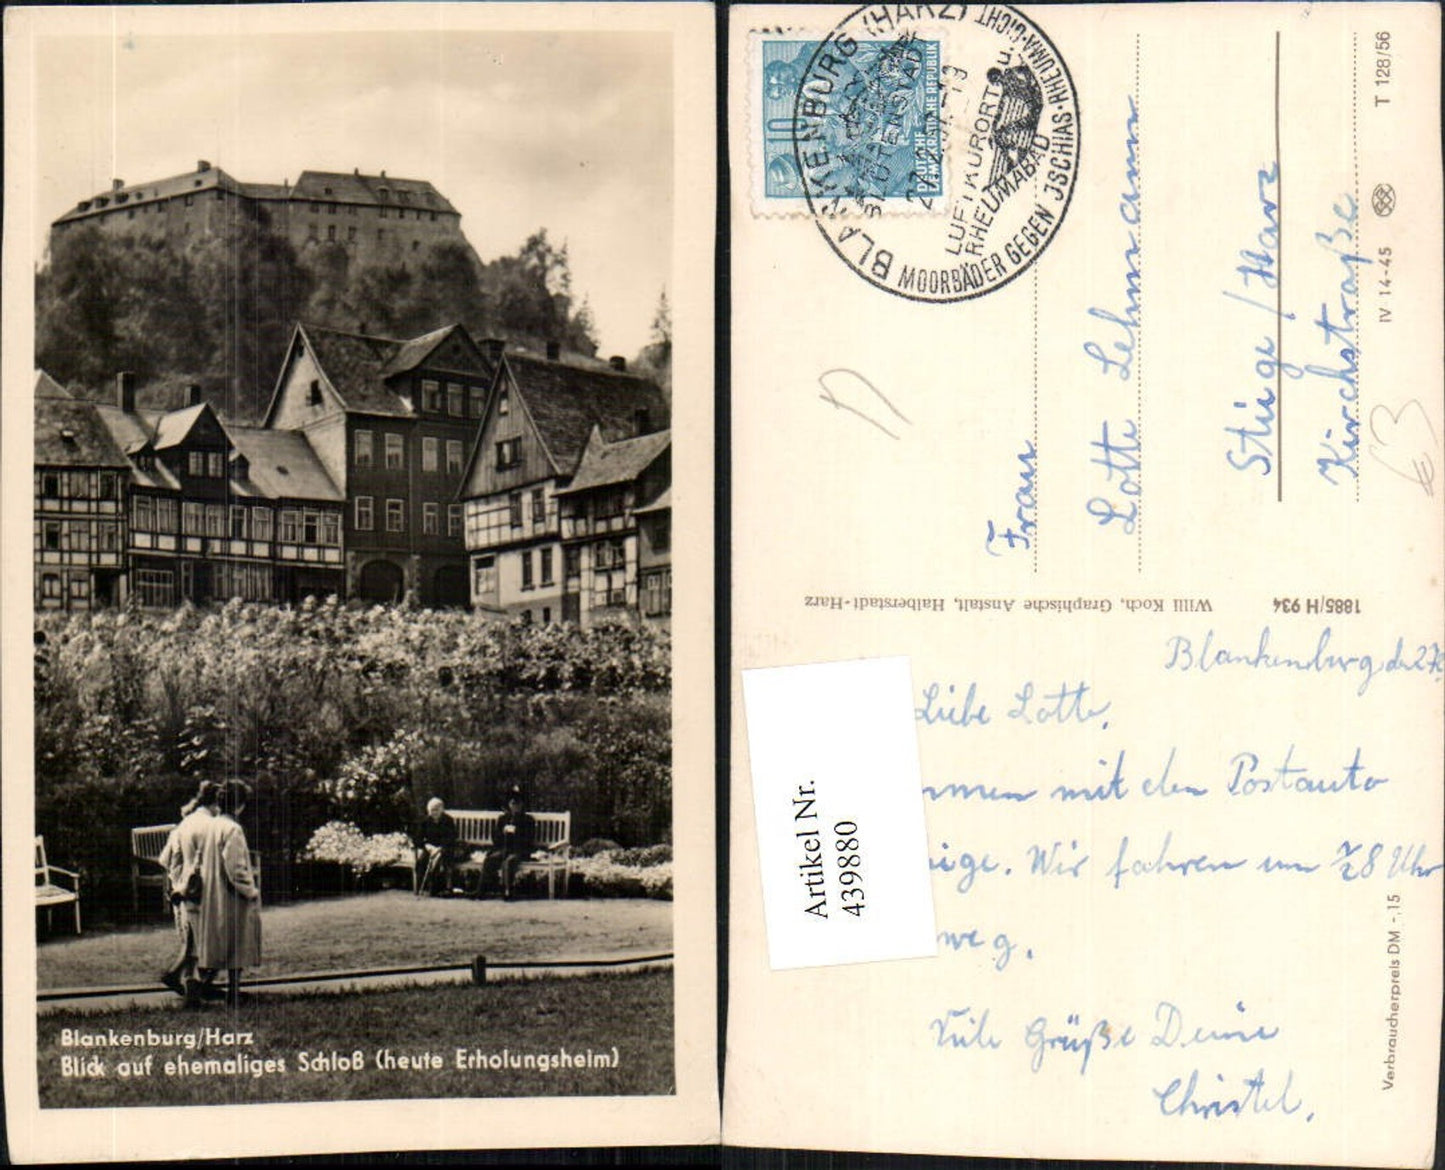 Blankenburg/Harz
Blick auf ehemaliges Schloß (heute Erholungsheim)
10
DEUTSCHE
DEMOKRATISCHE REPUBLIK
BLANKENBURG (HARZ)
BLÜTENSTADT
LUFTKURORT u.
RHEUMABAD
MOORBÄDER GEGEN JSCHIAS-RHEUMA-GICHT
Frau
Lotte Lehmann
Stiege / Harz
Kirchstraße
T 128/56
IV 14-45
€3
Willi Koch, Graphische Anstalt, Halberstadt-Harz
1885/H 934
Artikel Nr.
439880
Blankenburg, den 27.
Liebe Lotte,
mmen mit den Postauto
iege. Wir fahren um ½8 Uhr
weg.
Viele Grüße Deine
Christel.
Verbraucherpreis DM -,15